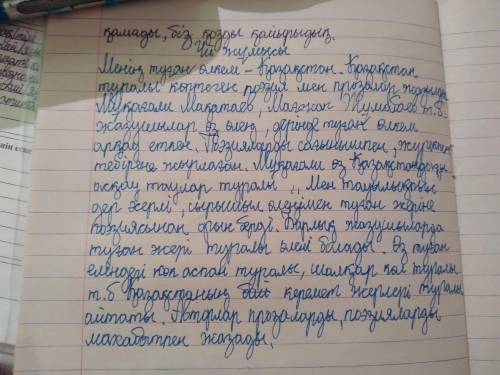 қамады, біз қозды қайырыдық.
Үй жұмысы
Менің туған өлкем - Қазақстан. Қазақстан
туралы көптеген поэзия мен прозалар жазылды
Мұқағали Мақатаев, Мағжан Жұмабаев т.б.
жазушылар өз өлең, дерінде туған өлкем
арқау еткен. Поэзияларды сағынышпен, жүрүктен
тебірене жырлаған. Мұқағали өз Қазақстандағы
асқақ таулар туралы ,, Мен таулықпын
дер жерлі", сырышыл өлеңімен туған жеріне
поэзиясынан орын берді. Барлық жазушыларда
туған жері туралы өлең болады. Өз туған
еліндегі көк аспан туралы, шалқар көл туралы
т.б Қазақстанның бай керемет жерлері туралы
айтаты. Авторлар прозаларды, поэзияларды
махаббатпен жазады,